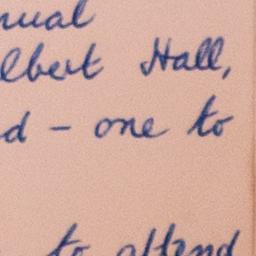 nual
lbert Hall,
d - one to
to attend